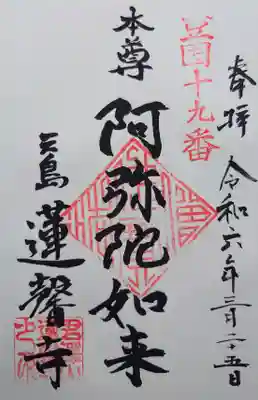 奉拝
令和六年三月二十五日
十九番
本尊
阿弥陀如来
三島
蓮馨寺